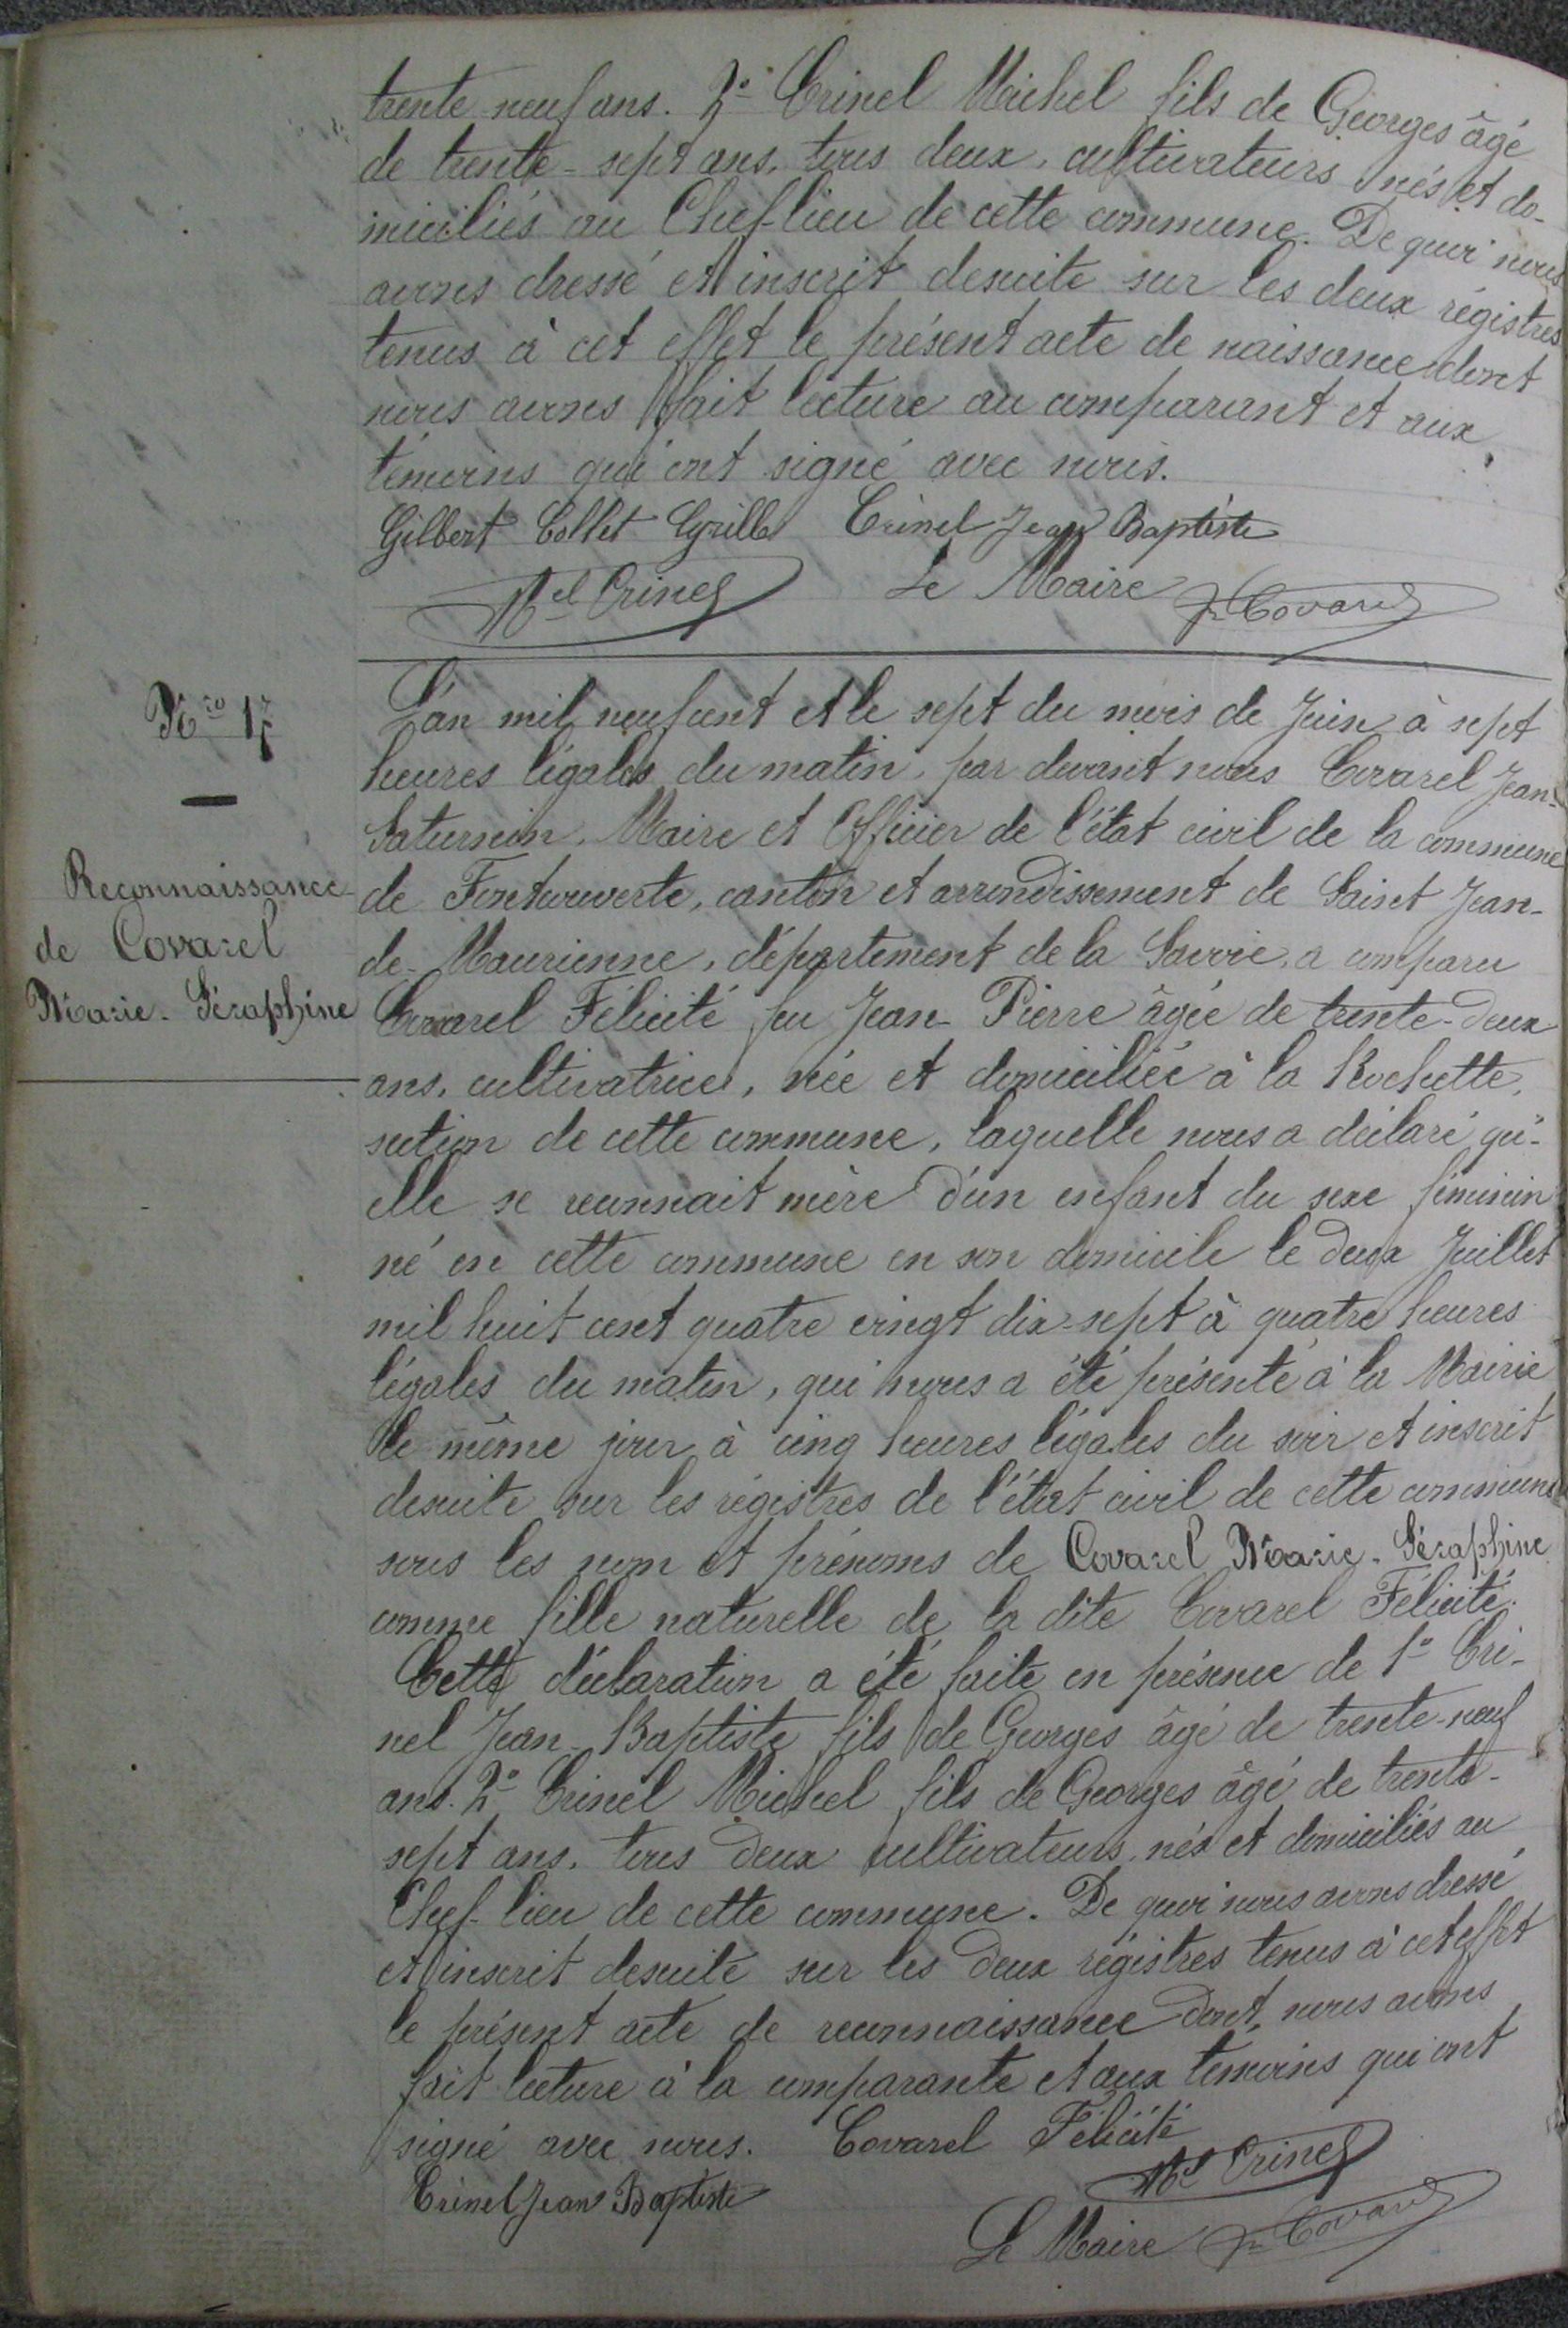 trente neuf ans. 2° Crinel Michel fils de Georges âgé
de trente-sept ans, tous deux, cultivateurs nés et do-
miciliés au Chef-lieu de cette commune. De quoi nous
avons dressé et inscrit desuite sur les deux régistres
tenus à cet effet le présent acte de naissance dont
nous avons fait lecture au comparant et aux
témoins qui ont signé avec nous.
Gilbert Collet Cyrille Crinel Jean Baptiste
Mel Crinel Le Maire Jn Covarel
Nro 17
Reconnaissance
de Covarel
Marie-Séraphine
L'an mil neuf cent et le sept du mois de Juin à sept
heures légales du matin, par devant nous Covarel Jean-
Saturnin, Maire et Officier de l'état civil de la commune
de Fontcouverte, canton et arrondissement de Saint Jean-
de-Maurienne, département de la Savoie, a comparu
Covarel Félicité feu Jean-Pierre âgée de trente-deux
ans, cultivatrice, née et domiciliée à la Rochette,
section de cette commune, laquelle nous a déclaré qu'-
elle se reconnait mère d'un enfant du sexe féminin
né en cette commune en son domicile le deux Juillet
mil huit cent quatre vingt dix-sept à quatre heures
légales du matin, qui nous a été présenté à la Mairie
le même jour à cinq heures légales du soir et inscrit
desuite sur les régistres de l'état civil de cette commune
sous les nom et prénoms de Covarel Marie-Séraphine
comme fille naturelle de la dite Covarel Félicité.
Cette déclaration a été faite en présence de 1° Cri-
nel Jean-Baptiste fils de Georges âgé de trente-neuf
ans. 2° Crinel Michel fils de Georges âgé de trente-
sept ans, tous deux cultivateurs, nés et domiciliés au
Chef-lieu de cette commune. De quoi nous avons dressé
et inscrit desuite sur les deux régistres tenus à cet effet
le présent acte de reconnaissance dont nous avons
fait lecture à la comparante et aux témoins qui ont
signé avec nous. Covarel Félicité
Crinel Jean Baptiste Mel Crinel
Le Maire Jn Covarel